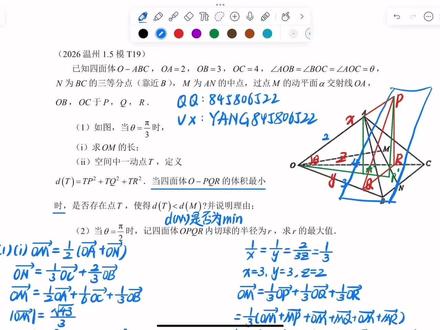 (2026 温州 1.5 模 T19)
已知四面体 O－ABC，OA＝2，OB＝3，OC＝4，∠AOB＝∠BOC＝∠AOC＝θ，
N 为 BC 的三等分点（靠近 B），M 为 AN 的中点，过点 M 的动平面 α 交射线 OA，
OB，OC 于 P，Q，R．
QQ：845806522
VX：YANG845806522
（1）如图，当 θ＝π/3 时，
（i）求 OM 的长；
（ii）空间中一动点 T，定义
d(T)＝TP²＋TQ²＋TR²．当四面体 O－PQR 的体积最小
时，是否存在点 T，使得 d(T)＜d(M)？并说明理由；
d(M)是否为min
（2）当 θ＝π/2 时，记四面体 OPQR 内切球的半径为 r，求 r 的最大值．
A
P
x
2
M
O
z
4
R
C
y
3
Q
B
N
(1)(i) OM＝1/2(OA＋ON)
ON＝1/3OC＋2/3OB
OM＝1/2OA＋1/6OC＋1/3OB
|OM|＝√43/3
1/x＝1/y＝2/3z＝1/3
x=3, y=3, z=2
OM＝1/3OP＋1/3OQ＋1/3OR
＝1/3(OM＋MP＋OM＋MQ＋OM＋MR)